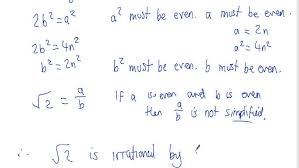 2b² = a² a² must be even. a must be even.
a = 2n
2b² = 4n² a² = 4n²
b² = 2n² b² must be even. b must be even.
√2 = a/b If a is even and b is even
then a/b is not simplified.
∴ √2 is irrational by